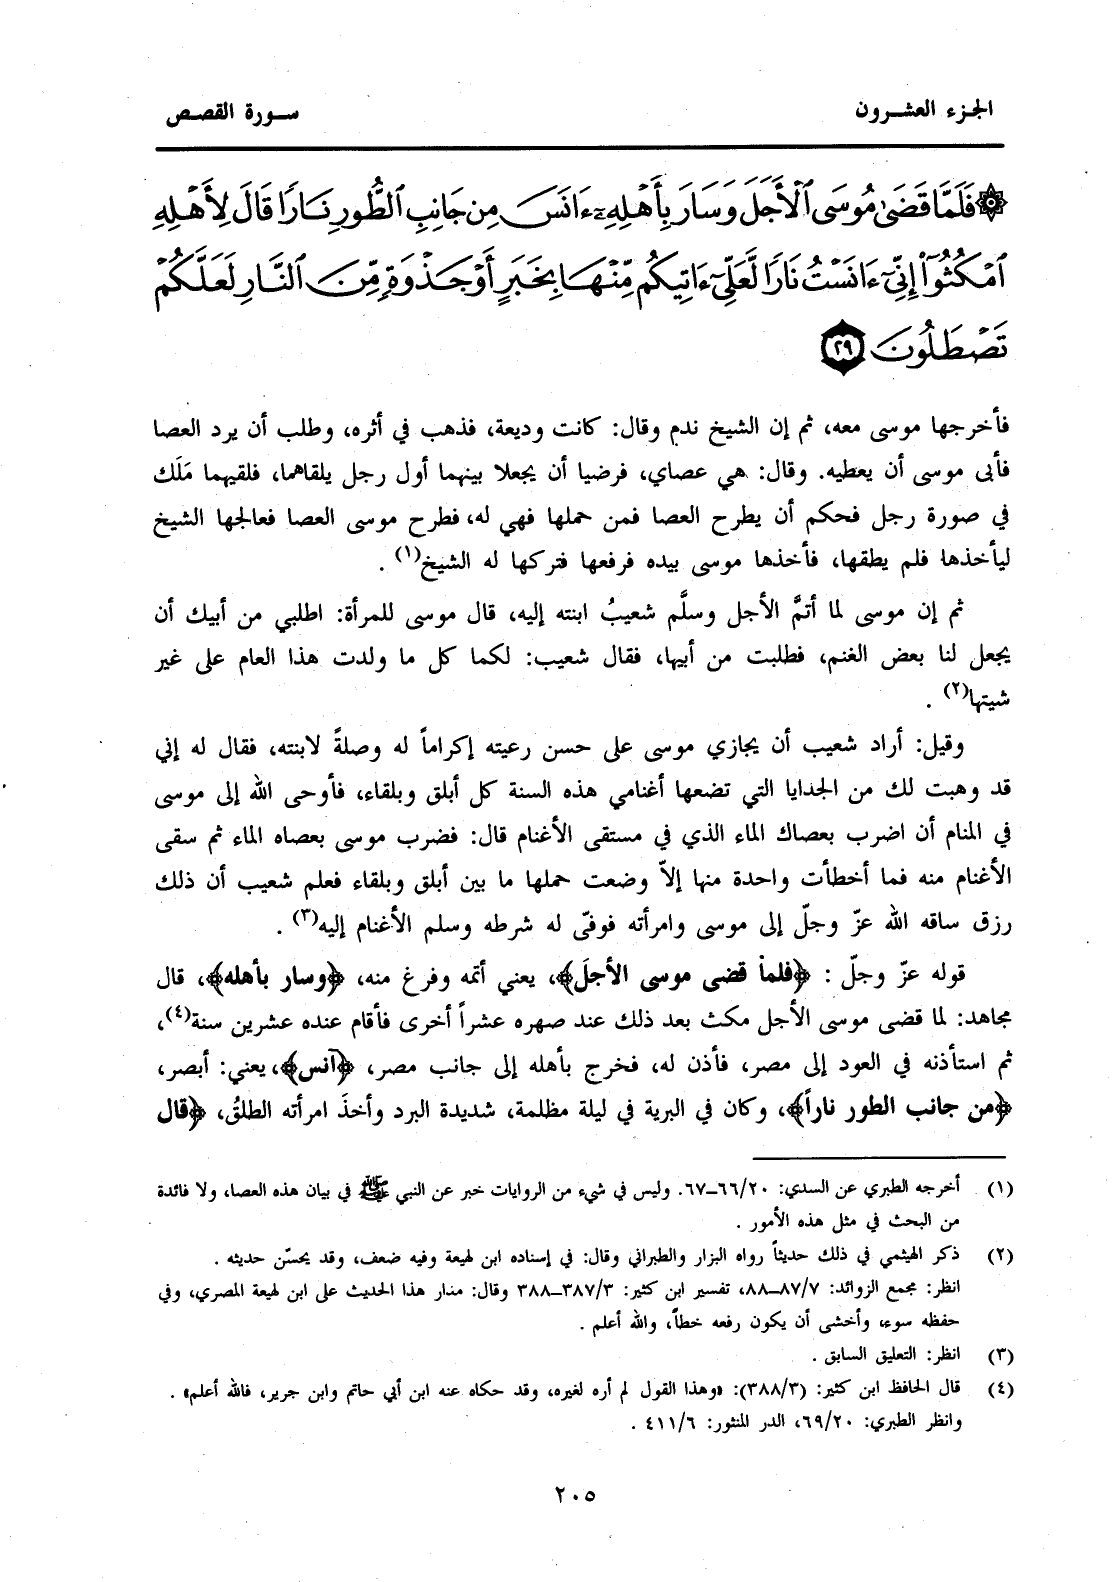 الجزء العشرون
سورة القصص
۞ فَلَمَّا قَضَىٰ مُوسَى ٱلْأَجَلَ وَسَارَ بِأَهْلِهِۦٓ ءَانَسَ مِن جَانِبِ ٱلطُّورِ نَارًا قَالَ لِأَهْلِهِ
ٱمْكُثُوٓا۟ إِنِّىٓ ءَانَسْتُ نَارًا لَّعَلِّىٓ ءَاتِيكُم مِّنْهَا بِخَبَرٍ أَوْ جَذْوَةٍ مِّنَ ٱلنَّارِ لَعَلَّكُمْ
تَصْطَلُونَ ٢٩
فأخرجها موسى معه، ثم إن الشيخ ندم وقال: كانت وديعة، فذهب في أثره، وطلب أن يرد العصا
فأبى موسى أن يعطيه. وقال: هي عصاي، فرضيا أن يجعلا بينهما أول رجل يلقاهما، فلقيهما مَلَك
في صورة رجل فحكم أن يطرح العصا فمن حملها فهي له، فطرح موسى العصا فعالجها الشيخ
ليأخذها فلم يطقها، فأخذها موسى بيده فرفعها فتركها له الشيخ(١) .
ثم إن موسى لما أتمَّ الأجل وسلَّم شعيبُ ابنته إليه، قال موسى للمرأة: اطلبي من أبيك أن
يجعل لنا بعض الغنم، فطلبت من أبيها، فقال شعيب: لكما كل ما ولدت هذا العام على غير
شيتها(٢) .
وقيل: أراد شعيب أن يجازي موسى على حسن رعيته إكراماً له وصلةً لابنته، فقال له إني
قد وهبت لك من الجدايا التي تضعها أغنامي هذه السنة كل أبلق وبلقاء، فأوحى الله إلى موسى
في المنام أن اضرب بعصاك الماء الذي في مستقى الأغنام قال: فضرب موسى بعصاه الماء ثم سقى
الأغنام منه فما أخطأت واحدة منها إلاّ وضعت حملها ما بين أبلق وبلقاء فعلم شعيب أن ذلك
رزق ساقه الله عزّ وجلّ إلى موسى وامرأته فوفّى له شرطه وسلم الأغنام إليه(٣) .
قوله عزّ وجلّ : ﴿فلما قضى موسى الأجلَ﴾، يعني أتمه وفرغ منه، ﴿وسار بأهله﴾، قال
مجاهد: لما قضى موسى الأجل مكث بعد ذلك عند صهره عشراً أخرى فأقام عنده عشرين سنة(٤)،
ثم استأذنه في العود إلى مصر، فأذن له، فخرج بأهله إلى جانب مصر، ﴿آنس﴾، يعني: أبصر،
﴿من جانب الطور ناراً﴾، وكان في البرية في ليلة مظلمة، شديدة البرد وأخذَ امرأته الطلقُ، ﴿قال
(١) أخرجه الطبري عن السدي: ٦٦/٢٠ـ٦٧. وليس في شيء من الروايات خبر عن النبي ﷺ في بيان هذه العصا، ولا فائدة
من البحث في مثل هذه الأمور .
(٢) ذكر الهيثمي في ذلك حديثاً رواه البزار والطبراني وقال: في إسناده ابن لهيعة وفيه ضعف، وقد يحسّن حديثه .
انظر: مجمع الزوائد: ٨٧/٧ـ٨٨، تفسير ابن كثير: ٣٨٧/٣ـ٣٨٨ وقال: مدار هذا الحديث على ابن لهيعة المصري، وفي
حفظه سوء، وأخشى أن يكون رفعه خطأً، والله أعلم .
(٣) انظر: التعليق السابق .
(٤) قال الحافظ ابن كثير: (٣٨٨/٣): «وهذا القول لم أره لغيره، وقد حكاه عنه ابن أبي حاتم وابن جرير، فالله أعلم» .
وانظر الطبري: ٦٩/٢٠، الدر المنثور: ٤١١/٦ .
٢٠٥